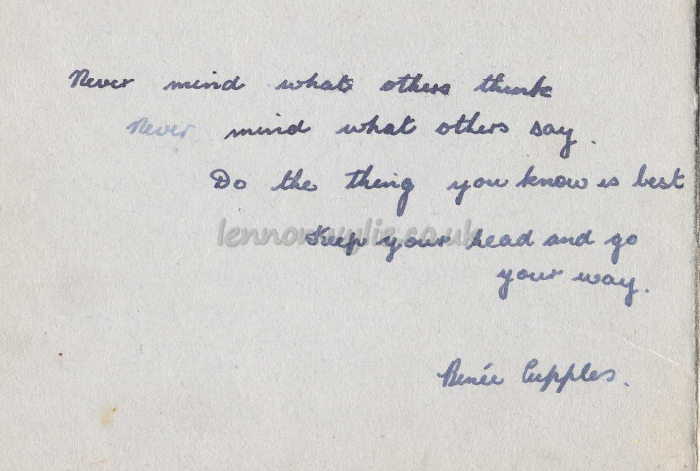 Never mind what others think
Never mind what others say.
Do the thing you know is best
Keep your head and go
your way.
Renée Cupples.
lennonwylie.co.uk